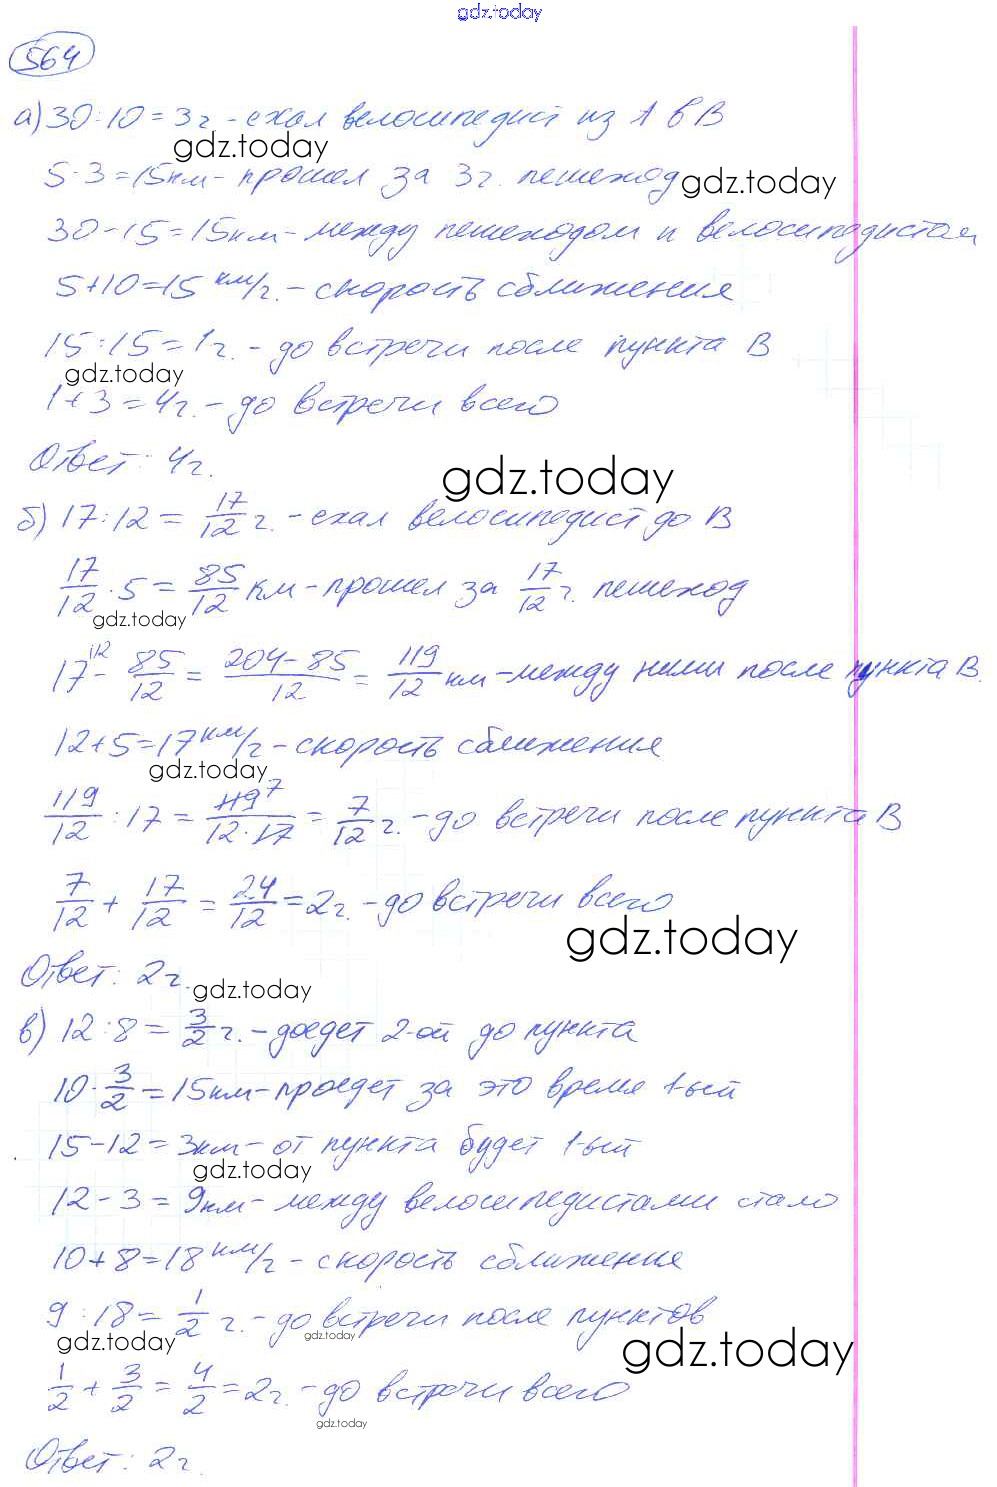 gdz.today
564
а) 30 : 10 = 3 г. - ехал велосипедист из А в В
gdz.today
5 · 3 = 15 км - прошел за 3 г. пешеход
gdz.today
30 - 15 = 15 км - между пешеходом и велосипедистом
5 + 10 = 15 км/г. - скорость сближения
15 : 15 = 1 г. - до встречи после пункта В
gdz.today
1 + 3 = 4 г. - до встречи всего
Ответ: 4 г.
gdz.today
б) 17 : 12 = 17/12 г. - ехал велосипедист до В
17/12 · 5 = 85/12 км - прошел за 17/12 г. пешеход
gdz.today
17 /12 - 85/12 = 204-85/12 = 119/12 км - между ними после пункта В.
12 + 5 = 17 км/г - скорость сближения
gdz.today
119/12 : 17 = 119 7/12 · 17 = 7/12 г. - до встречи после пункта В
7/12 + 17/12 = 24/12 = 2 г. - до встречи всего
gdz.today
Ответ: 2 г.
gdz.today
в) 12 : 8 = 3/2 г. - доедет 2-ой до пункта
10 · 3/2 = 15 км - проедет за это время 1-ый
15 - 12 = 3 км - от пункта будет 1-ый
gdz.today
12 - 3 = 9 км - между велосипедистами стало
10 + 8 = 18 км/г - скорость сближения
9 : 18 = 1/2 г. - до встречи после пунктов
gdz.today
gdz.today
gdz.today
1/2 + 3/2 = 4/2 = 2 г. - до встречи всего
gdz.today
Ответ: 2 г.